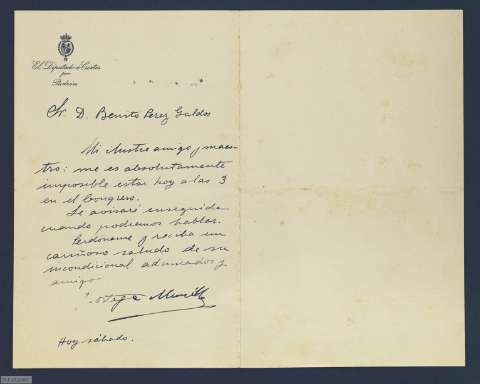 El Diputado a Cortes
por
Padrón
Sr. D. Benito Perez Galdos
Mi ilustre amigo y maes-
tro: me es absolutamente
imposible estar hoy a las 3
en el Congreso.
Le avisaré enseguida
cuando podremos hablar.
Perdoneme y reciba un
cariñoso saludo de su
incondicional admirador y
amigo
Ortega Munilla
Hoy sábado.